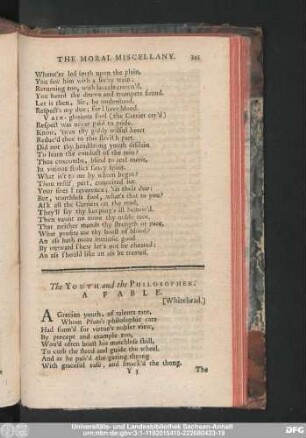 THE MORAL MISCELLANY. 325
Whene'er led forth upon the plain,
You saw him with a lordly train;
Returning too, with laurels crown'd,
You heard the drums and trumpets sound.
Let it then, Sir, be understood,
Respect's my due; for I have blood.
Vain-glorious fool! (the Carrier cry'd)
Respect was never paid to pride.
Know, 'twas thy giddy wilful heart
Reduc'd thee to this slavish part.
Did not thy headstrong youth disdain
To learn the conduct of the rein?
Thus coxcombs, blind to real merit,
In vicious frolics fancy spirit.
What is't to me by whom begot?
Thou restif, pert, conceited sot.
Your sires I reverence; 'tis their due:
But, worthless fool, what's that to you?
Ask all the Carriers on the road,
They'll say thy keeping's ill bestow'd.
Then vaunt no more thy noble race,
That neither mends thy strength or pace.
What profits me thy boast of blood?
An ass hath more intrinsic good.
By outward shew let's not be cheated;
An ass should like an ass be treated.
The YOUTH and the PHILOSOPHER.
A FABLE.
[Whitehead.]
A Grecian youth, of talents rare,
Whom Plato's philosophic care
Had form'd for virtue's nobler view,
By precept and example too,
Wou'd often boast his matchless skill,
To curb the steed and guide the wheel.
And as he pass'd the gazing throng
With graceful ease, and smack'd the thong,
Y 3 The
Universitäts- und Landesbibliothek Sachsen-Anhalt
urn:nbn:de:gbv:3:1-1192015415-222680423-19
DFG